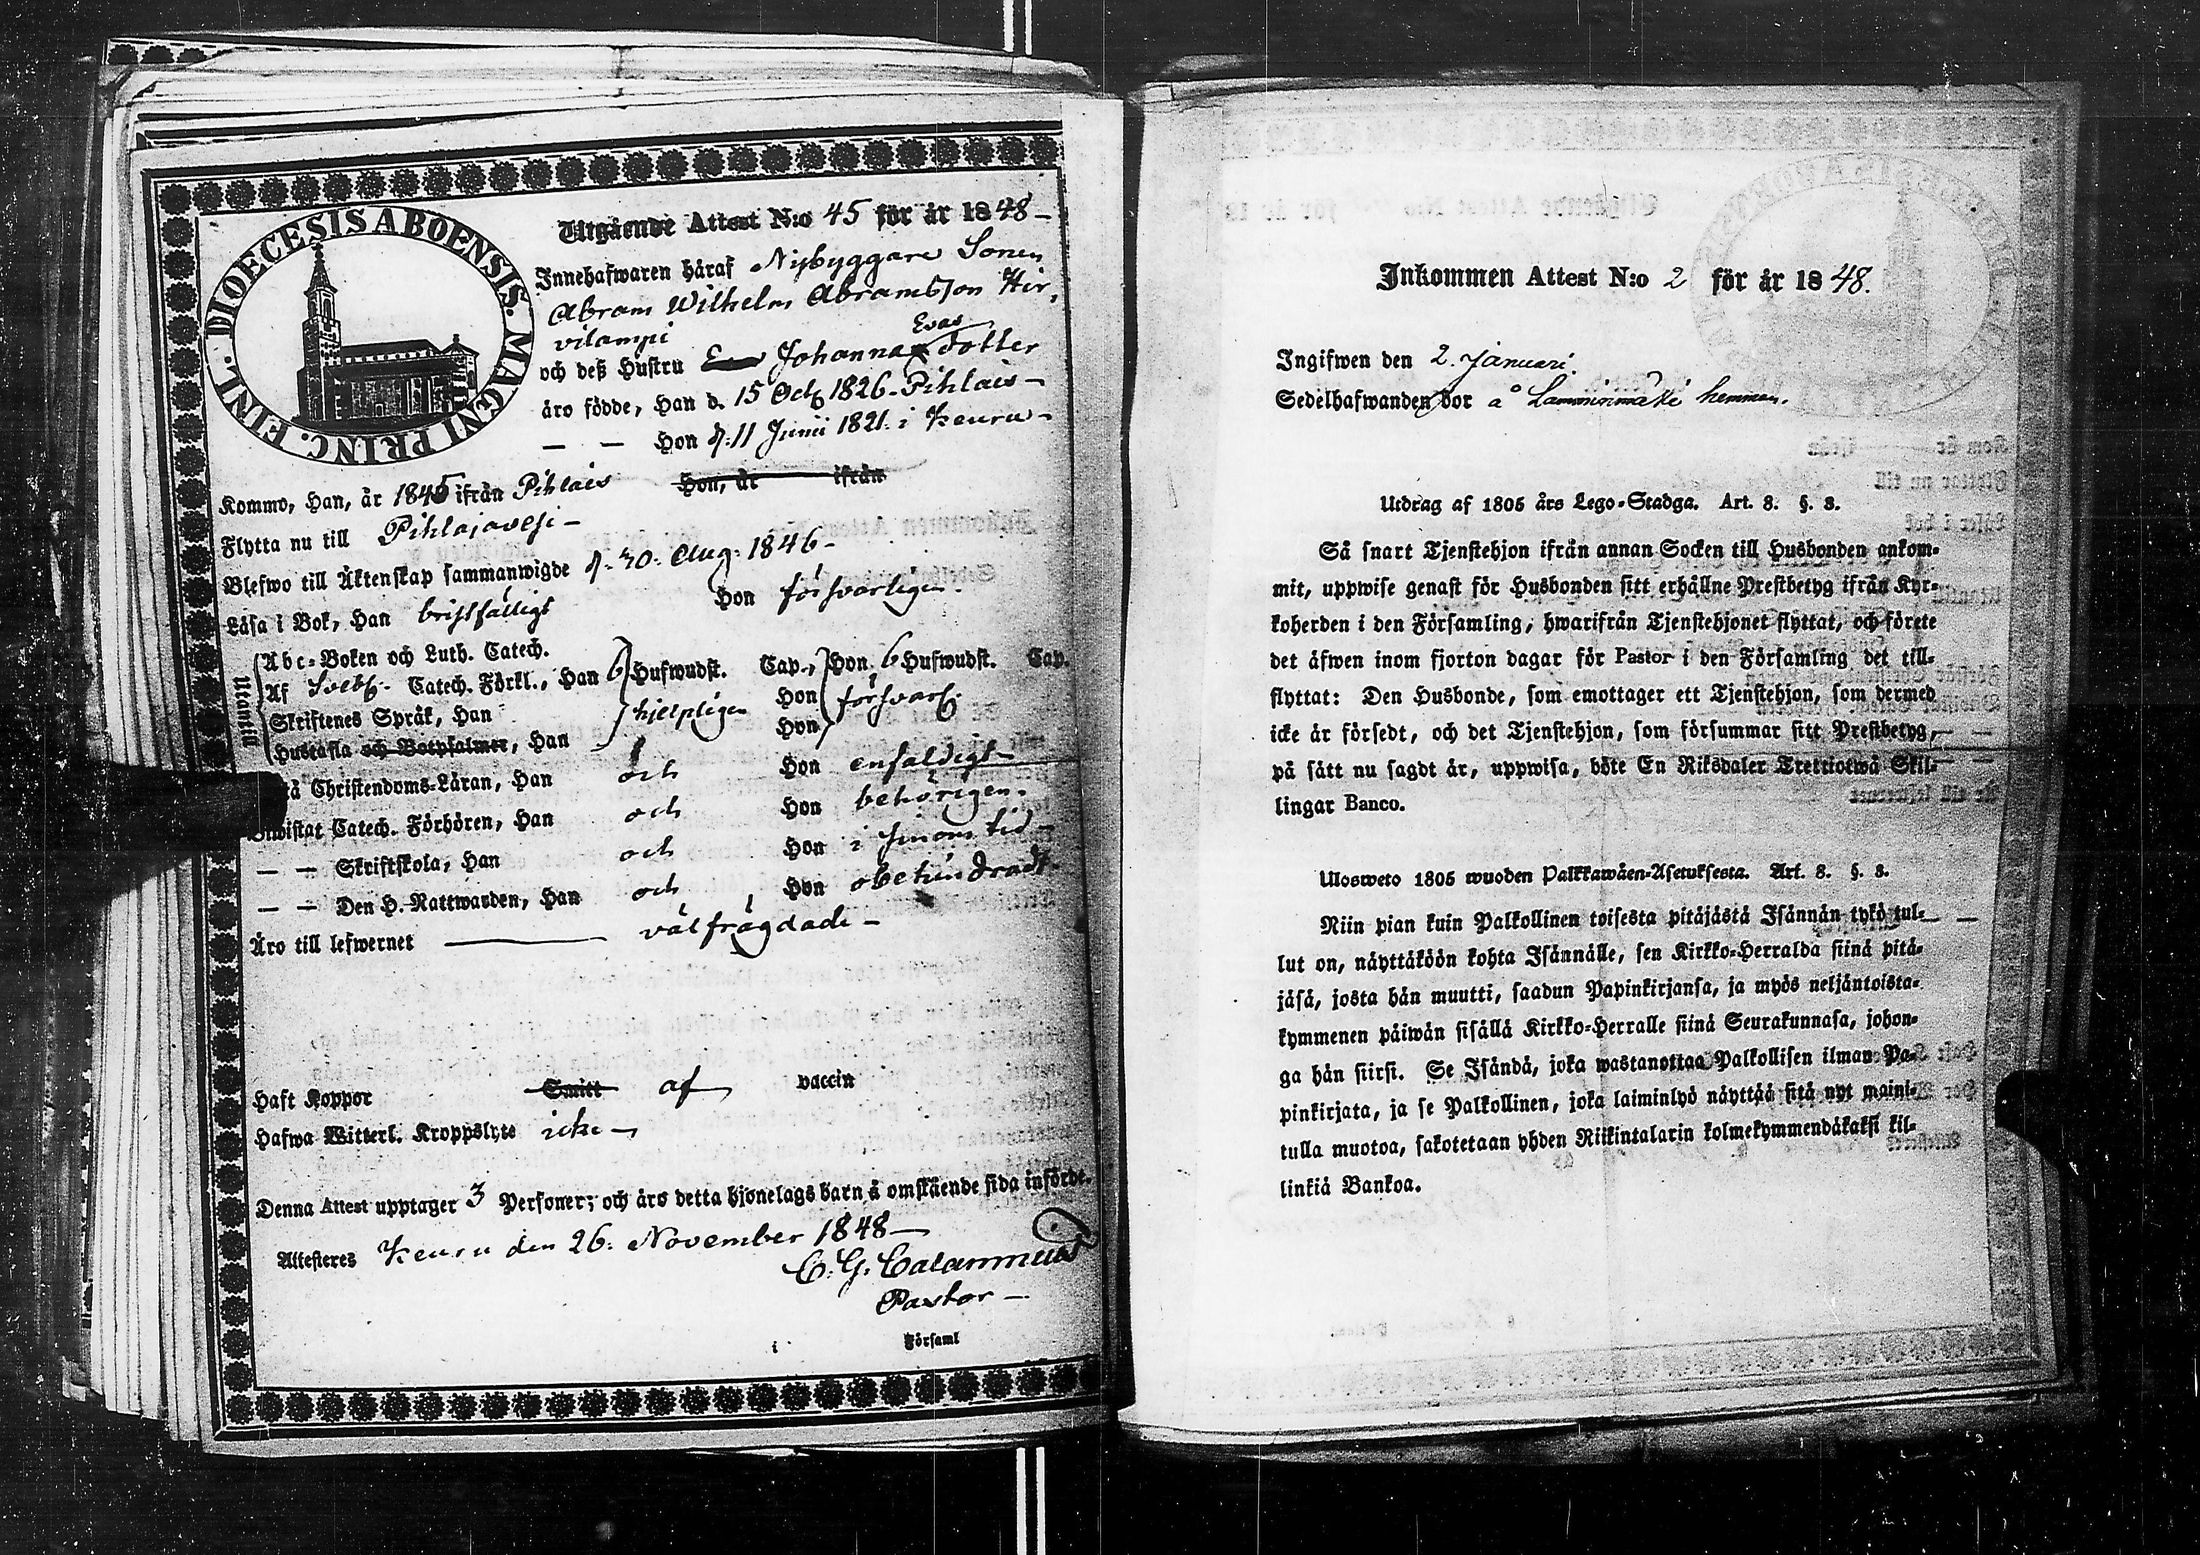 DIOECESIS ABOENSIS. MAGNI PRINC. FINL.
Utgående Attest N:o 45 för år 1848 –
Innehafwaren häraf Nybyggare Sonen
Abram Wilhelm Abramsson Hir,
vilampi
Evas
och deß Hustru Johanna dotter
äro födde, Han d. 15 Oct; 1826 - Pihlais –
— — Hon d: 11 Junii 1821. i Keuru –
Kommo, Han, år 1845 ifrån Pihlais Hon, år ifrån
Flytta nu till Pihlajavesi –
Blefwo till Äktenskap sammanwigde d. 30. Aug: 1846 –
Läsa i Bok, Han bristfälligt Hon försvarligen.
Utantill
Abc-Boken och Luth. Catech.
Af Svebs. Catech. Förkl., Han 6 Hufwudst. Cap., Hon 6 Hufwudst. Cap.
Skriftenes Språk, Han hjelpligen Hon försvarl.
Hustafla och Botpsalmer, Han Hon
Christendoms-Läran, Han och Hon enfaldigt –
Bewistat Catech. Förhören, Han och Hon behörigen.
— — Skriftskola, Han och Hon i sinom tid –
— — Den H. Nattwarden, Han och Hon obehindradt.
Äro till lefwernet välfrägdade –
Haft Koppor Smitt af vaccin
Hafwa Witterl. Kroppslyte icke –
Denna Attest upptager 3 Personer; och äro detta hjonelags barn å omstående sida införde.
Attesteres Keuru den 26. November 1848 –
C. G. Calamnius
Pastor –
i Församl
Inkommen Attest N:o 2 för år 1848.
Ingifwen den 2. Januari.
Sedelhafwanden bor å Lamminmäki hemman.
Utdrag af 1805 års Lego-Stadga. Art. 8. §. 8.
Så snart Tjenstehjon ifrån annan Socken till Husbonden ankom-
mit, uppwise genast för Husbonden sitt erhållne Prestbetyg ifrån Kyr-
koherden i den Församling, hwarifrån Tjenstehjonet flyttat, och förete
det äfwen inom fjorton dagar för Pastor i den Församling det till-
flyttat: Den Husbonde, som emottager ett Tjenstehjon, som dermed
icke är försedt, och det Tjenstehjon, som försummar sitt Prestbetyg,
på sätt nu sagdt är, uppwisa, böte En Riksdaler Trettiotwå Skil-
lingar Banco.
Ulosweto 1805 wuoden Palkkawäen-Asetuksesta. Art. 8. §. 8.
Niin pian kuin Palkollinen toisesta pitäjästä Isännän tykö tul-
lut on, näyttäköön kohta Isännälle, sen Kirkko-Herralda siinä pitä-
jäsä, josta hän muutti, saadun Papinkirjansa, ja myös neljäntoista-
kymmenen päiwän sisällä Kirkko-Herralle siinä Seurakunnasa, johon-
ga hän siirsi. Se Isändä, joka wastanottaa Palkollisen ilman Pa-
pinkirjata, ja se Palkollinen, joka laiminlyö näyttää sitä nyt maini-
tulla muotoa, sakotetaan yhden Riikintalarin kolmekymmendäkaksi kil-
linkiä Bankoa.